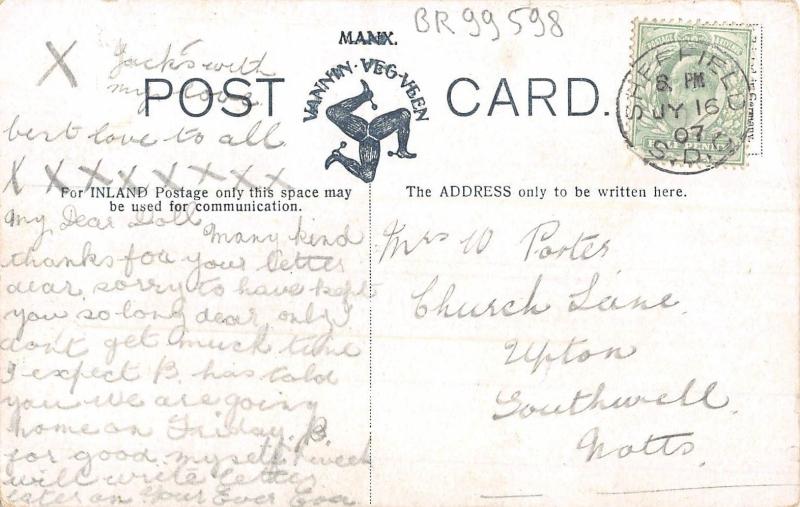 BR 99598
MANX.
X Jack's with
my love
POST CARD.
VANNIN·VEG·VEEN
best love to all
X X X X X X X X
SHEFFIELD
8. PM
JY 16
07
S.D.
HALF PENNY
For INLAND Postage only this space may
be used for communication.
The ADDRESS only to be written here.
My Dear Doll
Many kind
thanks for your letter
dear, sorry to have kept
you so long dear, only
don't get much time
I expect B. has told
you we are going
home on Friday, B.
for good. myself 1 week
will write letter
later on Your Ever Eva
Mrs W Porter
Church Lane
Upton
Southwell.
Notts.